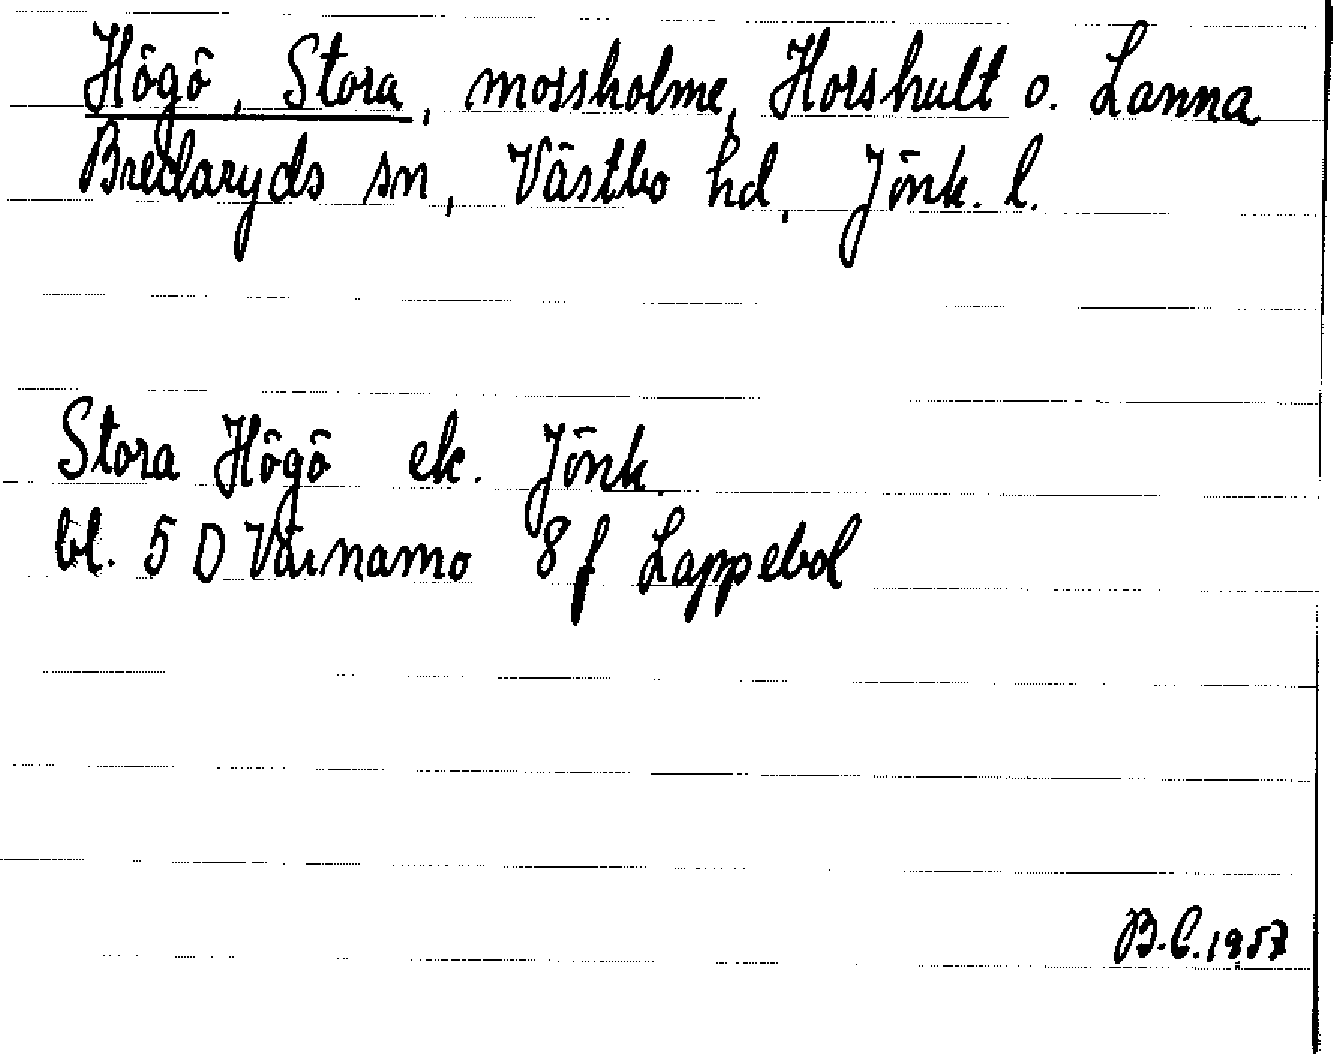 Högö, Stora, mossholme, Horshult o. Lanna
Bredaryds sn, Västbo hd, Jönk. l.
Stora Högö ek. Jönk.
bl. 5 D Värnamo 8 f Lappebol
B.C. 1957